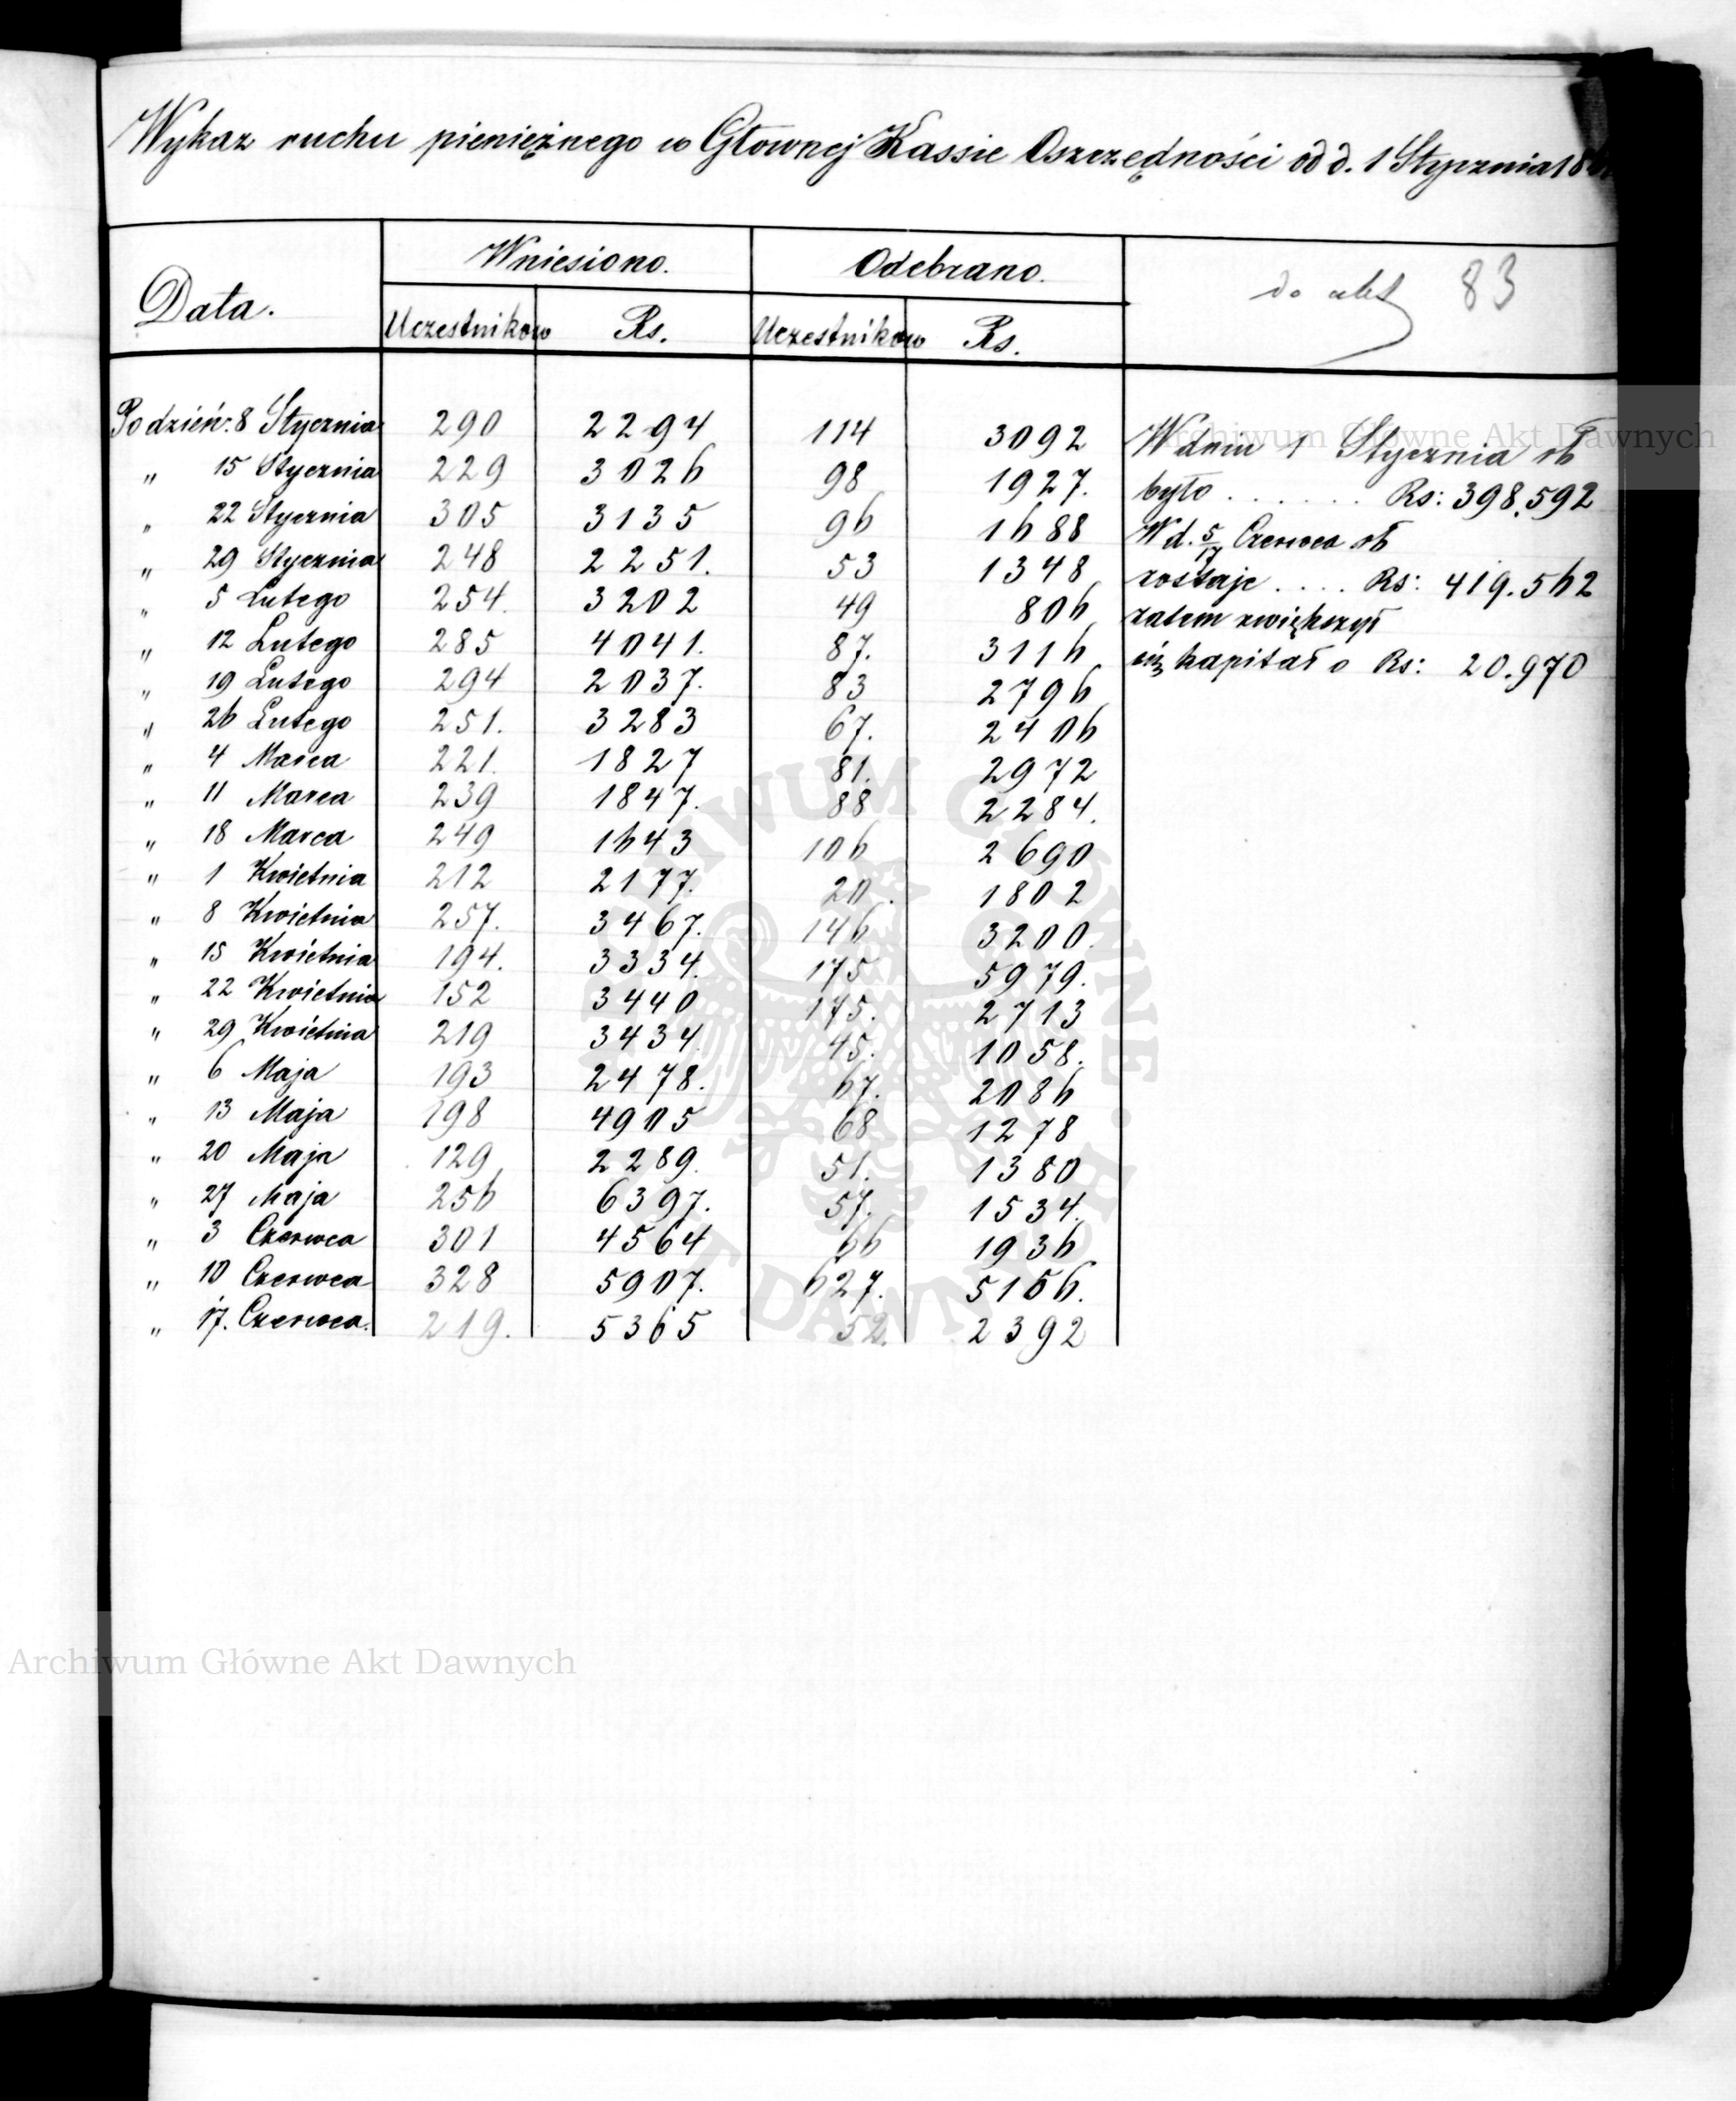 Wykaz ruchu pieniężnego w Głownej Kassie Oszczędności od d. 1 Stycznia 18
Data. Wniesiono. Odebrano. do akt 83
Uczestnikow Rs. Uczestnikow Rs.
Po dzień: 8 Stycznia 290 2294 114 3092
" 15 Stycznia 229 3026 98 1927.
" 22 Stycznia 305 3135 96 1688
" 29 Stycznia 248 2251. 53 1348
" 5 Lutego 254. 3202 49 806
" 12 Lutego 285 4041. 87. 3116
" 19 Lutego 294 2037. 83 2796
" 26 Lutego 251. 3283 67. 2406
" 4 Marca 221. 1827 81. 2972
" 11 Marca 239 1847. 88 2284.
" 18 Marca 249 1643 106 2690
" 1 Kwietnia 212 2177. 20. 1802
" 8 Kwietnia 257. 3467. 146 3200.
" 15 Kwietnia 194. 3334. 175 5979.
" 22 Kwietnia 152 3440 175. 2713
" 29 Kwietnia 219 3434. 45. 1058.
" 6 Maja 193 2478. 67. 2086
" 13 Maja 198 4905 68 1278
" 20 Maja 129 2289. 51. 1380
" 27 Maja 256 6397. 57. 1534.
" 3 Czerwca 301 4564 66 1936
" 10 Czerwca 328 5907. 627. 5166.
" 17. Czerwca. 219. 5365 52. 2392
W dniu 1 Stycznia rb
było . . . . . . Rs: 398.592
W d. 5/17 Czerwca rb
zostaje . . . . Rs: 419.562
zatem zwiększył
się kapitał o Rs: 20.970
Archiwum Główne Akt Dawnych
Archiwum Główne Akt Dawnych